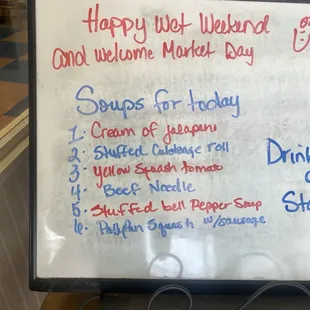 Happy Wet Weekend
and welcome Market Day
Soups for today
1. Cream of Jalapano
2. Stuffed Cabbage roll
3. Yellow Squash tomato
4. Beef Noodle
5. Stuffed bell Pepper Soup
6. Squash w/sausage
Drin
Sta